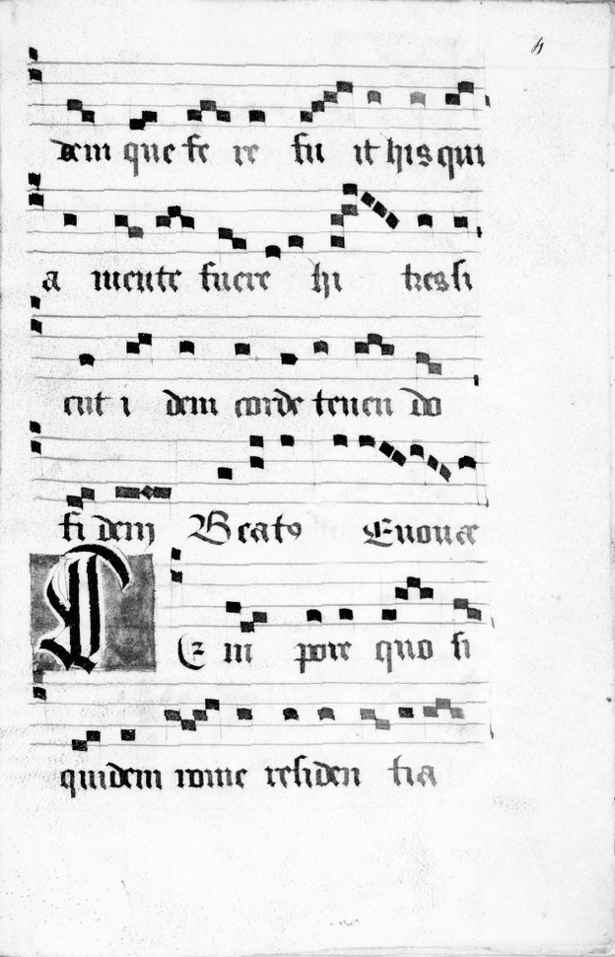 dem que fe re fu it his qui
a mente fuere hi tres si
cut i dem corde tenen do
fi dem Beatꝰ Euouæ
T Em pore quo si
quidem rome residen tia